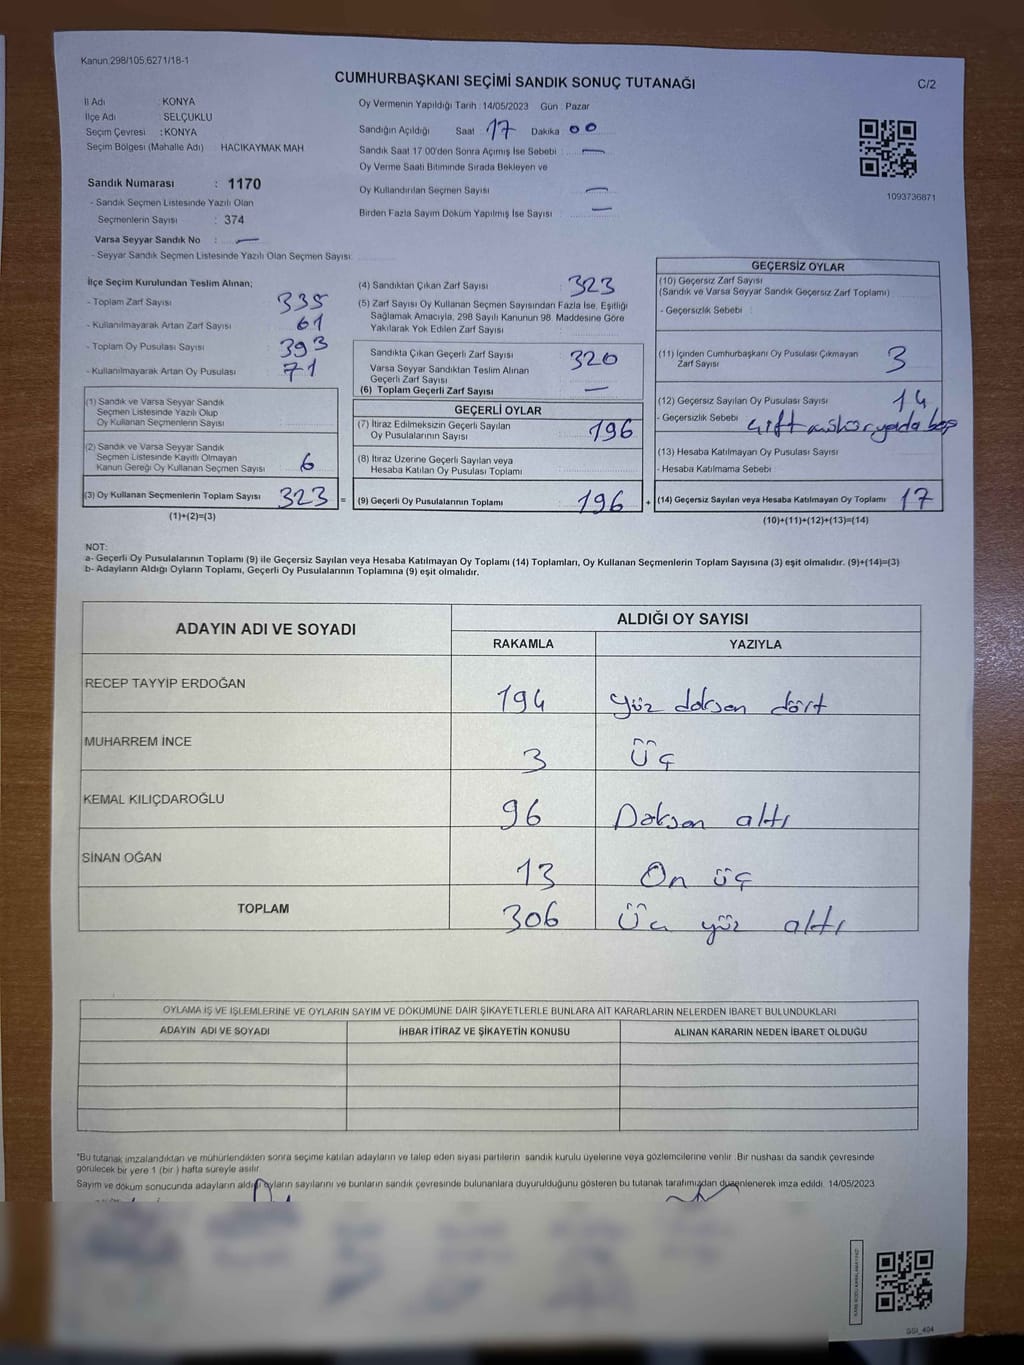 Kanun 298/105.6271/18-1
CUMHURBAŞKANI SEÇİMİ SANDIK SONUÇ TUTANAĞI
C/2
İl Adı : KONYA
İlçe Adı : SELÇUKLU
Seçim Çevresi : KONYA
Seçim Bölgesi (Mahalle Adı) HACIKAYMAK MAH
Sandık Numarası : 1170
- Sandık Seçmen Listesinde Yazılı Olan
Seçmenlerin Sayısı : 374
Varsa Seyyar Sandık No : —
- Seyyar Sandık Seçmen Listesinde Yazılı Olan Seçmen Sayısı:
Oy Vermenin Yapıldığı Tarih : 14/05/2023 Gün : Pazar
Sandığın Açıldığı Saat : 17 Dakika : 00
Sandık Saat 17 00'den Sonra Açımış İse Sebebi : —
Oy Verme Saati Bitiminde Sırada Bekleyen ve
Oy Kullandırılan Seçmen Sayısı —
Birden Fazla Sayım Döküm Yapılmış İse Sayısı : —
1093736871
İlçe Seçim Kurulundan Teslim Alınan;
- Toplam Zarf Sayısı : 335
- Kullanılmayarak Artan Zarf Sayısı : 61
- Toplam Oy Pusulası Sayısı : 393
- Kullanılmayarak Artan Oy Pusulası : 71
(1) Sandık ve Varsa Seyyar Sandık
Seçmen Listesinde Yazılı Olup
Oy Kullanan Seçmenlerin Sayısı :
(2) Sandık ve Varsa Seyyar Sandık
Seçmen Listesinde Kayıtlı Olmayan
Kanun Gereği Oy Kullanan Seçmen Sayısı : 6
(3) Oy Kullanan Seçmenlerin Toplam Sayısı : 323 =
(1)+(2)=(3)
(4) Sandıktan Çıkan Zarf Sayısı : 323
(5) Zarf Sayısı Oy Kullanan Seçmen Sayısından Fazla İse, Eşitliği
Sağlamak Amacıyla, 298 Sayılı Kanunun 98. Maddesine Göre
Yakılarak Yok Edilen Zarf Sayısı :
Sandıkta Çıkan Geçerli Zarf Sayısı : 320
Varsa Seyyar Sandıktan Teslim Alınan
Geçerli Zarf Sayısı
(6) Toplam Geçerli Zarf Sayısı : —
GEÇERLİ OYLAR
(7) İtiraz Edilmeksizin Geçerli Sayılan
Oy Pusulalarının Sayısı : 196
(8) İtiraz Üzerine Geçerli Sayılan veya
Hesaba Katılan Oy Pusulası Toplamı :
(9) Geçerli Oy Pusulalarının Toplamı : 196 +
GEÇERSİZ OYLAR
(10) Geçersiz Zarf Sayısı
(Sandık ve Varsa Seyyar Sandık Geçersiz Zarf Toplamı) :
- Geçersizlik Sebebi :
(11) İçinden Cumhurbaşkanı Oy Pusulası Çıkmayan
Zarf Sayısı : 3
(12) Geçersiz Sayılan Oy Pusulası Sayısı : 14
- Geçersizlik Sebebi : çift mühür yada boş
(13) Hesaba Katılmayan Oy Pusulası Sayısı :
- Hesaba Katılmama Sebebi :
(14) Geçersiz Sayılan veya Hesaba Katılmayan Oy Toplamı : 17
(10)+(11)+(12)+(13)=(14)
NOT:
a- Geçerli Oy Pusulalarının Toplamı (9) ile Geçersiz Sayılan veya Hesaba Katılmayan Oy Toplamı (14) Toplamları, Oy Kullanan Seçmenlerin Toplam Sayısına (3) eşit olmalıdır. (9)+(14)=(3)
b- Adayların Aldığı Oyların Toplamı, Geçerli Oy Pusulalarının Toplamına (9) eşit olmalıdır.
ADAYIN ADI VE SOYADI
ALDIĞI OY SAYISI
RAKAMLA YAZIYLA
RECEP TAYYİP ERDOĞAN 194 yüz doksan dört
MUHARREM İNCE 3 üç
KEMAL KILIÇDAROĞLU 96 Doksan altı
SİNAN OĞAN 13 On üç
TOPLAM 306 üç yüz altı
OYLAMA İŞ VE İŞLEMLERİNE VE OYLARIN SAYIM VE DÖKÜMÜNE DAİR ŞİKAYETLERLE BUNLARA AİT KARARLARIN NELERDEN İBARET BULUNDUKLARI
ADAYIN ADI VE SOYADI İHBAR İTİRAZ VE ŞİKAYETİN KONUSU ALINAN KARARIN NEDEN İBARET OLDUĞU
*Bu tutanak imzalandıktan ve mühürlendikten sonra seçime katılan adayların ve talep eden siyasi partilerin sandık kurulu üyelerine veya gözlemcilerine verilir. Bir nüshası da sandık çevresinde
görülecek bir yere 1 (bir ) hafta süreyle asılır.
Sayım ve döküm sonucunda adayların aldığı oyların sayılarını ve bunların sandık çevresinde bulunanlara duyurulduğunu gösteren bu tutanak tarafımızdan düzenlenerek imza edildi. 14/05/2023